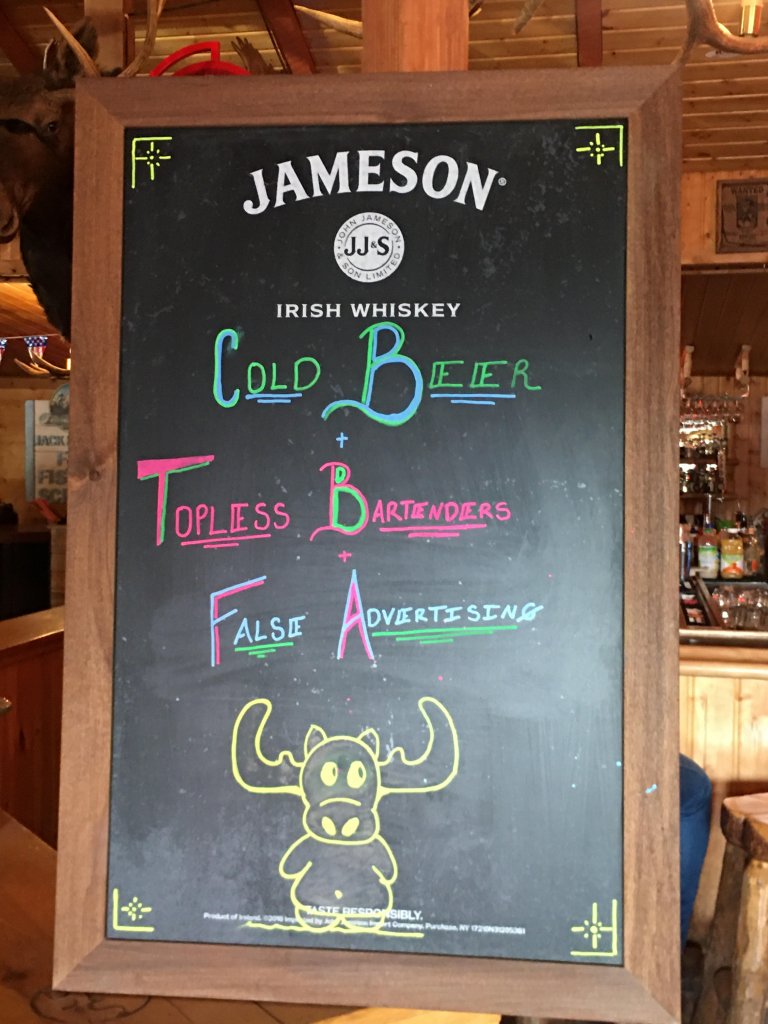 JAMESON®
JOHN JAMESON & SON LIMITED
JJ&S
IRISH WHISKEY
COLD BEER
+
TOPLESS BARTENDERS
+
FALSE ADVERTISING
TASTE RESPONSIBLY.
Product of Ireland. ©2016 Imported by John Jameson Import Company, Purchase, NY
WANTED
JACK